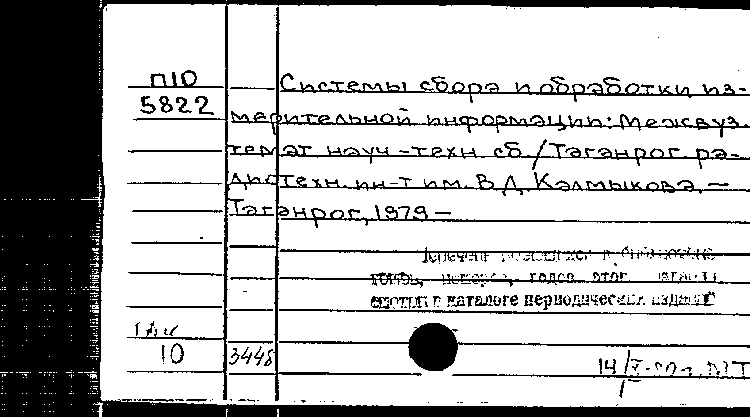 П10
5822
Системы сбора и обработки из-
мерительной информации: Межвуз.
темат науч-техн сб. / Таганрог. ра-
диотехн. ин-т им. В.Д. Калмыкова. —
Таганрог, 1979 —
имеющихся в библиотеке
томов, номеров, годов этого издания
смотри в каталоге периодических изданий
10
3448
14